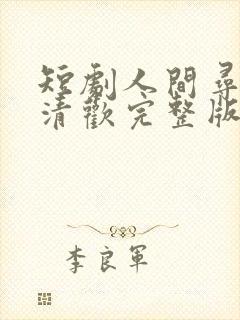 短劇人間尋
清歡完整版
李良軍